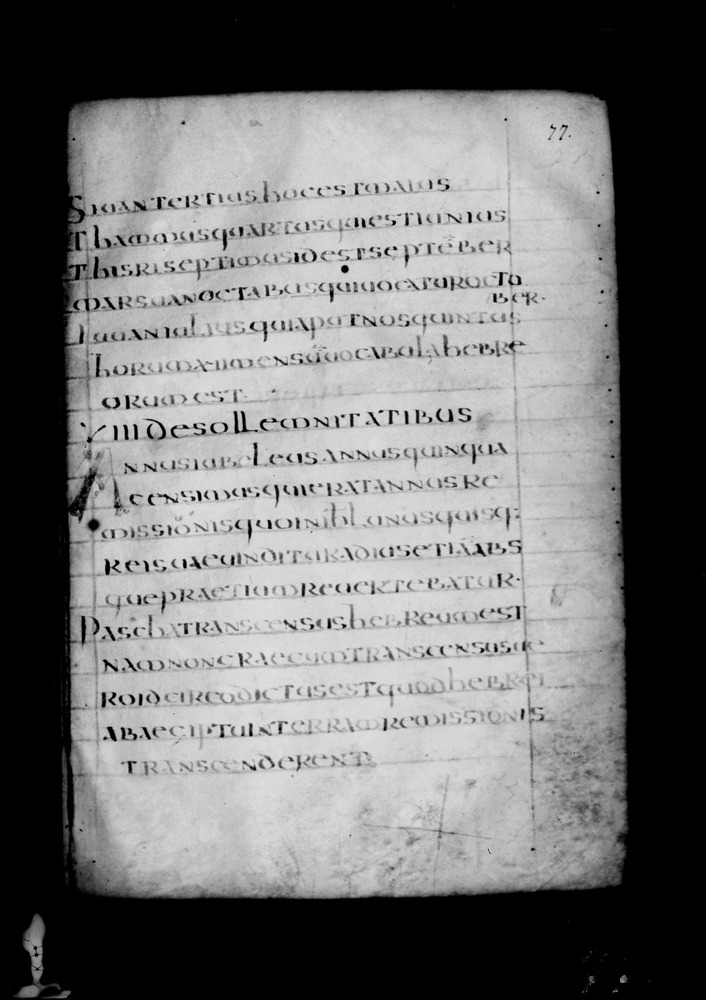 77.
SIUANTERTIUShOCESTMAIUS
ThAMMUSQUARTUSQUIESTIUNIUS
ThISRISEPTIMUSIDESTSEPTĒBER
MARSUANOCTABUSQUIUOCATUROCTO
BER·
hORUM
ORUMEST·
VIIIIDESOLLEMNITATIBUS
ANNUSIUBELEUSANNUSQUINQUA
CENSIMUSQUIERATANNUSRE
MISSIŌNISQUO
REISUAEUINDITURADIUSETIAABS
QUEPRAETIUMREUERTEBATUR·
PASChATRANSCENSUShEBREUMEST
NAMNONGRAECUMTRANSCENSUSUE
ROIDCIRCODICTUSESTQUODhEBREI
ABAEGIPTUINTERRAMREMISSIONIS
TRANSCENDERENT·